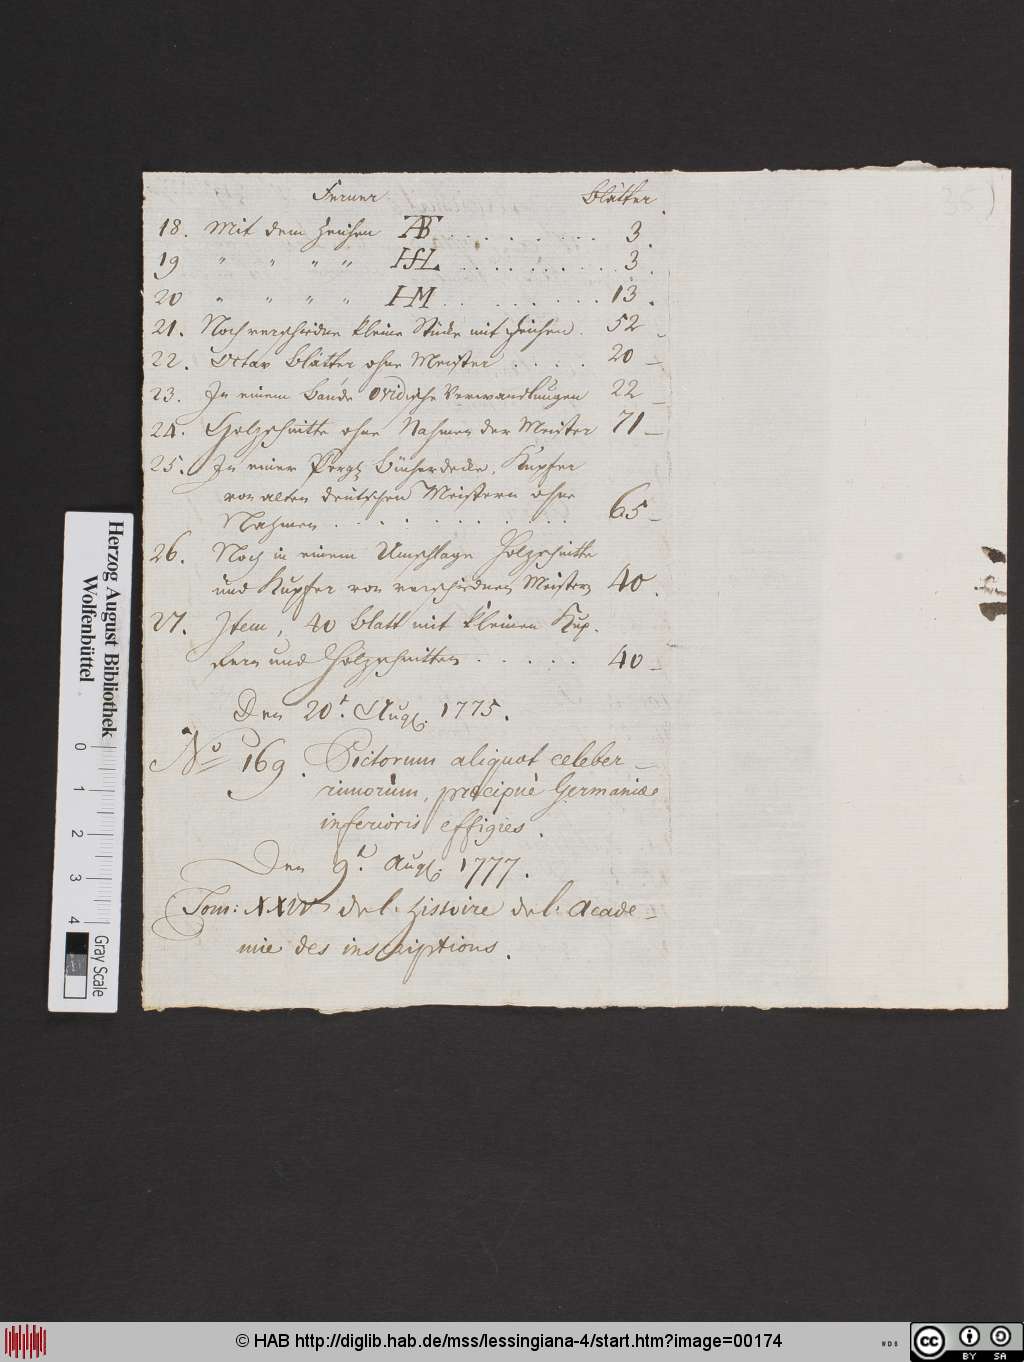 Ferner Blätter.
18. Mit dem Zeichen AB . . . . . . . . . 3.
19 " " " " HSL. . . . . . . . . . 3.
20 " " " " HM . . . . . . . . . 13.
21. Noch verschiedne kleine Stücke mit Zeichen. 52
22. Octav Blätter ohne Meister . . . . 20 –
23. In einem Bande Ovidische Verwandlungen 22 –
24. Holzschnitte ohne Nahmen der Meister 71 –
25. In einer Perg. Bücherdecke, Kupfer
von alten deutschen Meistern ohne
Nahmen . . . . . . . . . . 65 –
26. Noch in einem Umschlage Holzschnitte
und Kupfer von verschiednen Meistern 40.
27. Item, 40 Blatt mit kleinen Kup-
fern und Holzschnitten . . . . . 40 –
Den 20t. Aug. 1775.
No 169. Pictorum aliquot celeber-
rimorùm, præcipuè Germaniæ
inferioris effigies.
Den 9t. Aug. 1777.
Tom: XXIV del. histoire del: Acade-
mie des inscriptions.
35)
Herzog August Bibliothek
Wolfenbüttel
0 1 2 3 4
Gray Scale
© HAB http://diglib.hab.de/mss/lessingiana-4/start.htm?image=00174
cc BY SA